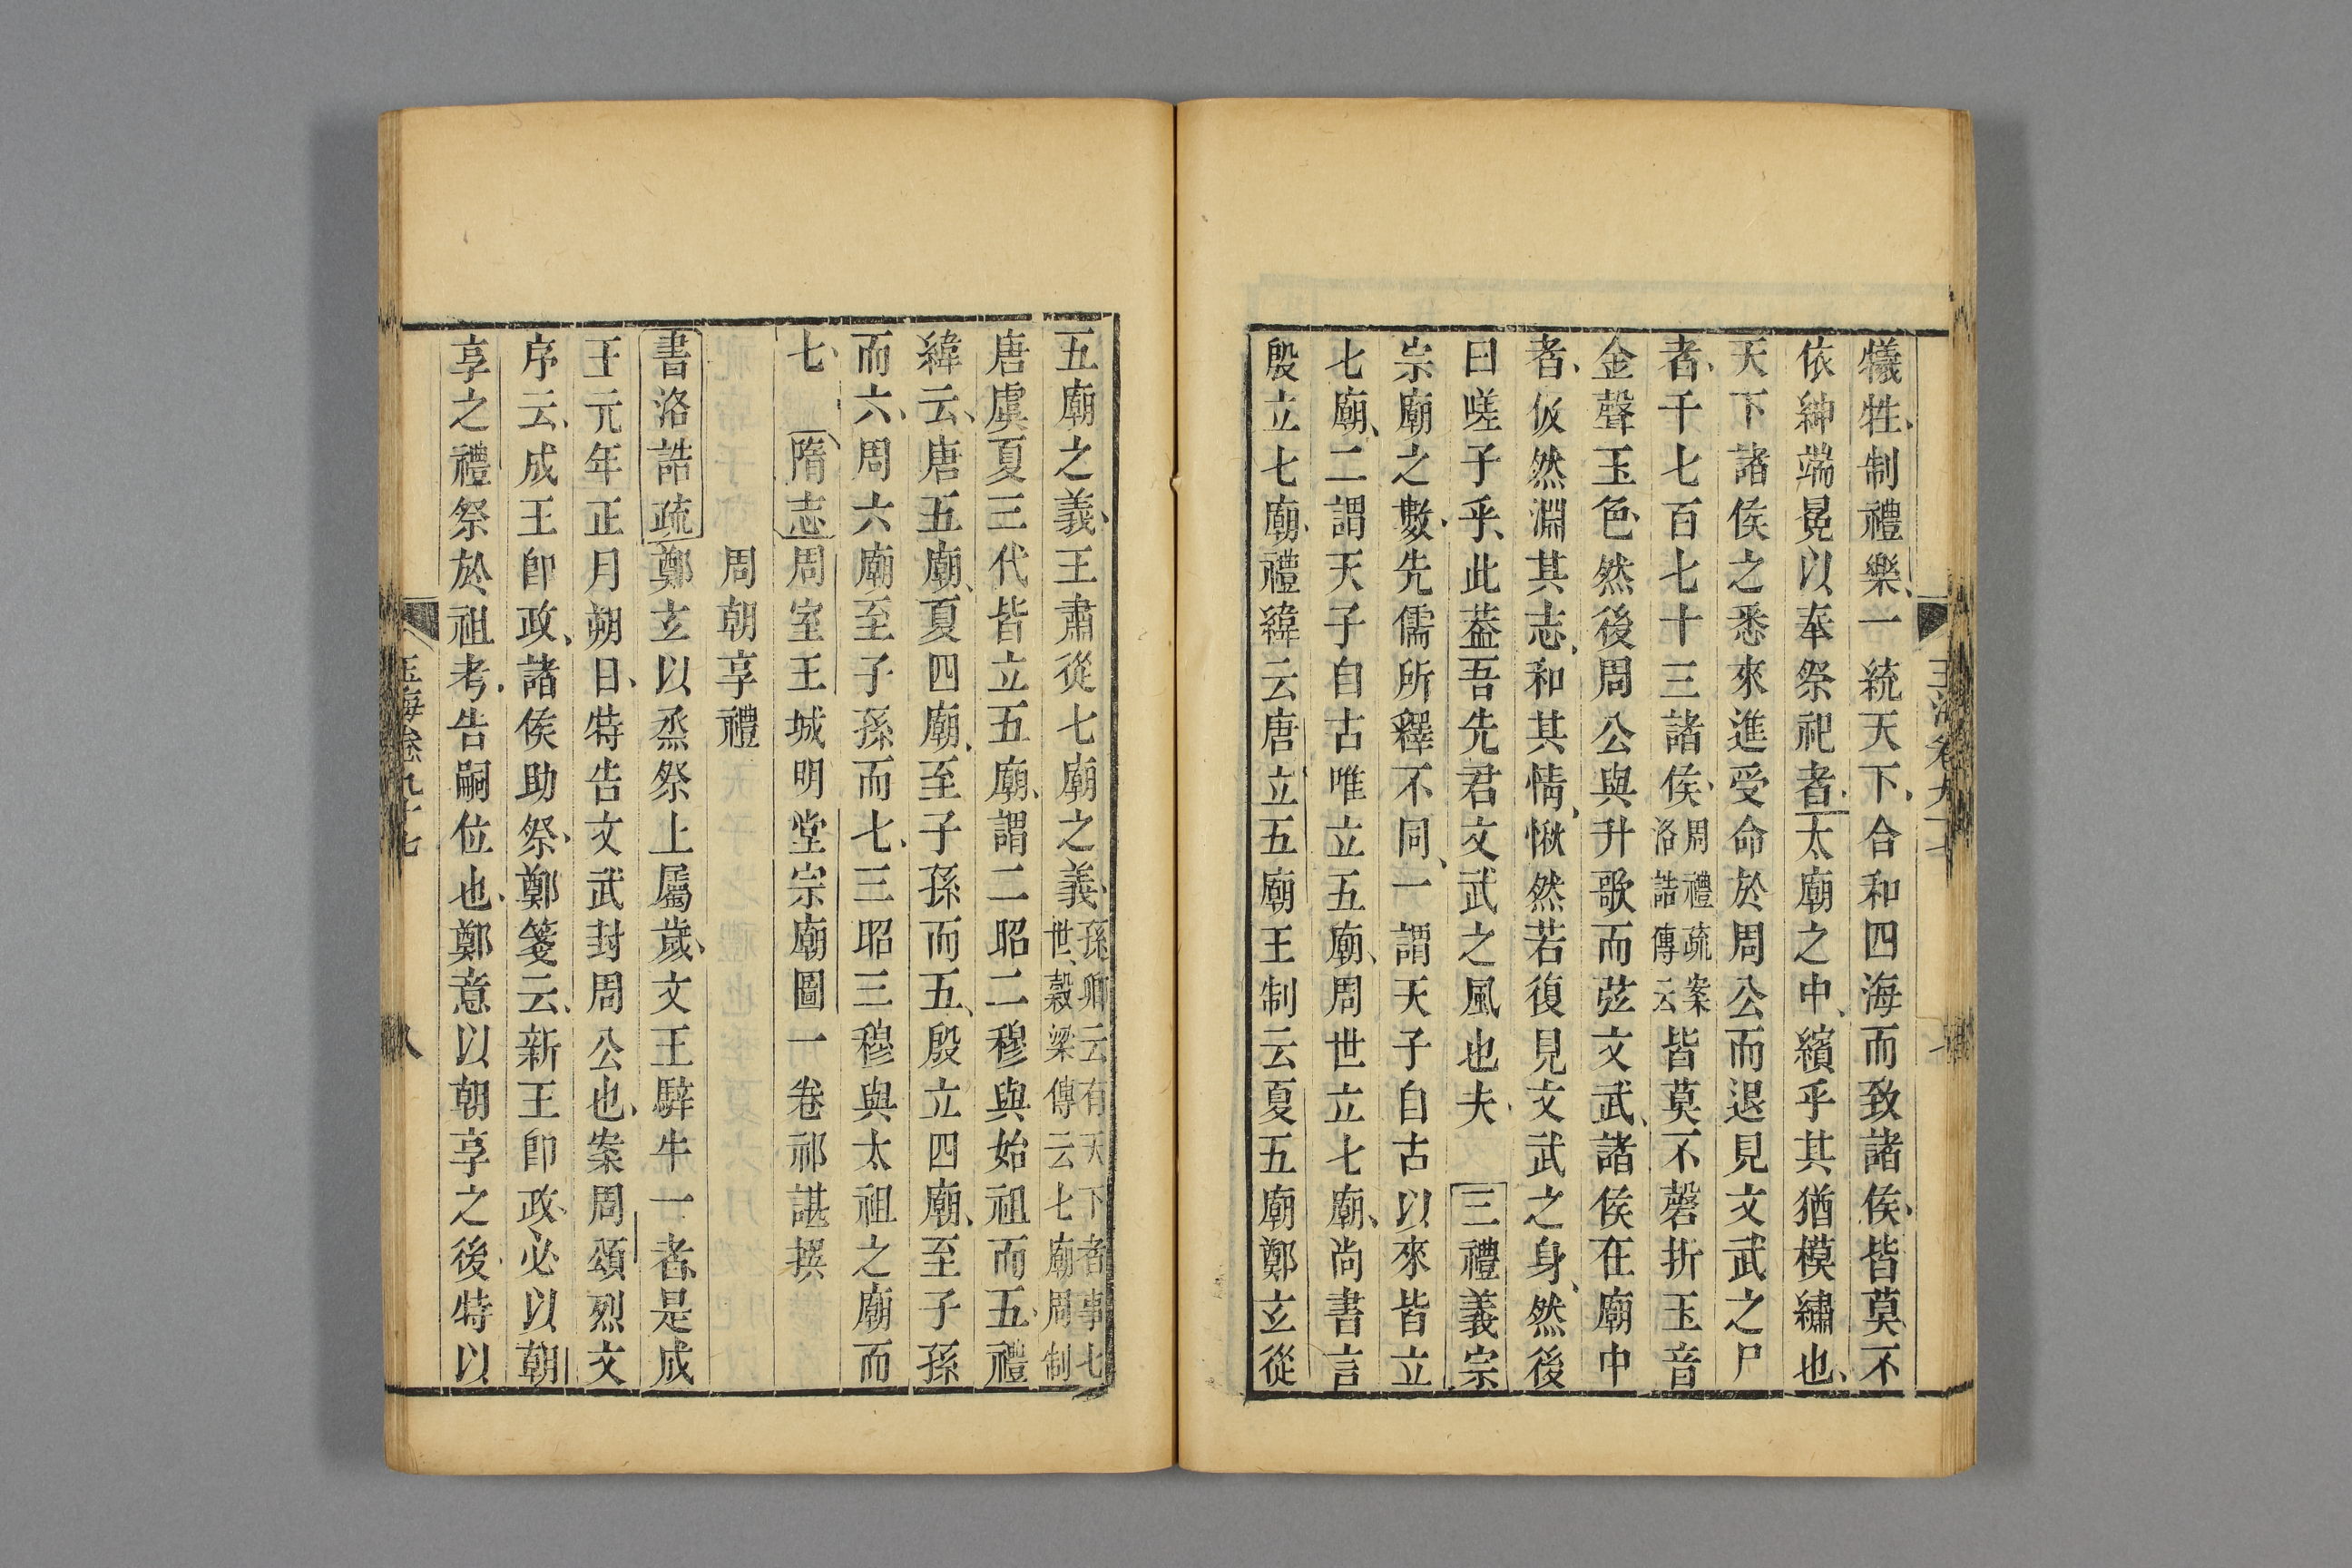 犧牲制禮樂一統天下合和四海而致諸侯皆莫不
依紳端冕以奉祭祀者太廟之中繽乎其猶模繡也
天下諸侯之悉來進受命於周公而退見文武之尸
者千七百七十三諸侯周禮疏案洛誥傳云皆莫不磬折玉音
金聲玉色然後周公與升歌而弦文武諸侯在廟中
者伋然淵其志和其情愀然若復見文武之身然後
曰嗟子乎此葢吾先君文武之風也夫 三禮義宗
宗廟之數先儒所釋不同一謂天子自古以來皆立
七廟二謂天子自古唯立五廟周世立七廟尚書言
殷立七廟禮緯云唐立五廟王制云夏五廟鄭玄從
玉海卷九十七
五廟之義王肅從七廟之義孫卿云有天下者事七世穀梁傳云七廟周制
唐虞夏三代皆立五廟謂二昭二穆與始祖而五禮
緯云唐五廟夏四廟至子孫而五殷立四廟至子孫
而六周六廟至子孫而七三昭三穆與太祖之廟而
七 隋志周室王城明堂宗廟圖一卷祁諶撰
周朝享禮
書洛誥疏鄭玄以烝祭上屬歲文王騂牛一者是成
王元年正月朔日特告文武封周公也案周頌烈文
序云成王卽政諸侯助祭鄭箋云新王卽政必以朝
享之禮祭於祖考告嗣位也鄭意以朝享之後特以
玉海卷九十七
八